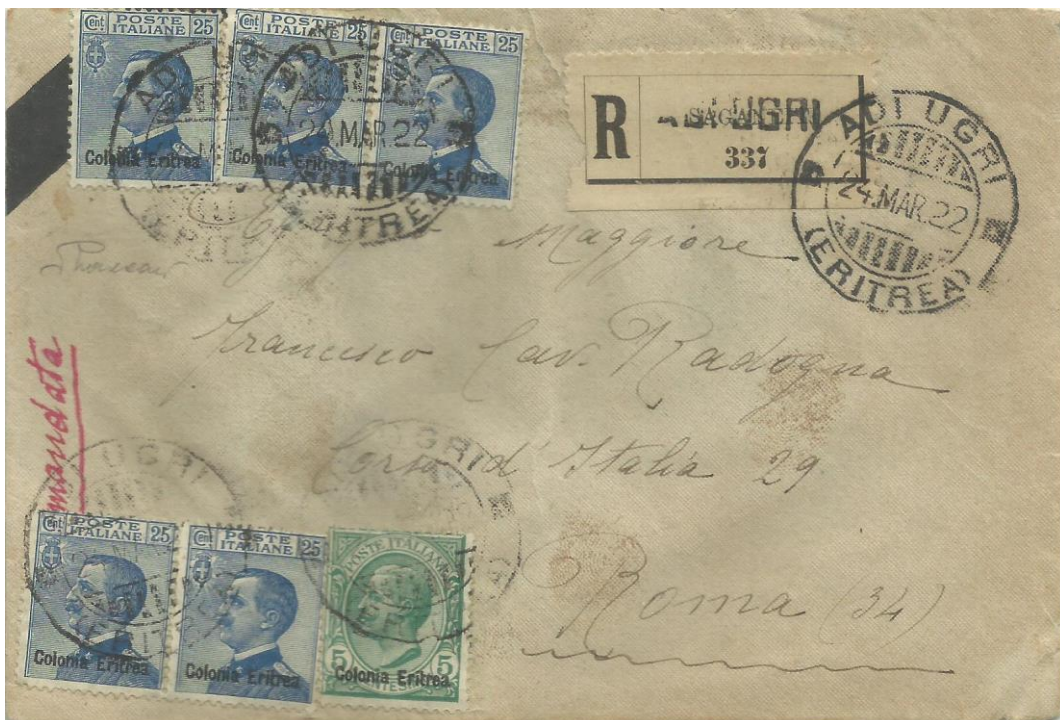 Cent POSTE ITALIANE 25
Colonia Eritrea
Cent POSTE ITALIANE 25
Colonia Eritrea
Cent POSTE ITALIANE 25
Colonia Eritrea
ADI UGRI
24.MAR.22
(ERITREA)
R ADI UGRI
SAGANEITI
337
ADI UGRI
24.MAR.22
(ERITREA)
Maggiore
Francesco Cav. Radogna
Corso d'Italia 29
Roma (34)
mandata
UGRI
Cent POSTE ITALIANE 25
Colonia Eritrea
Cent POSTE ITALIANE 25
Colonia Eritrea
UGRI
POSTE ITALIANE
5 5
Colonia Eritrea